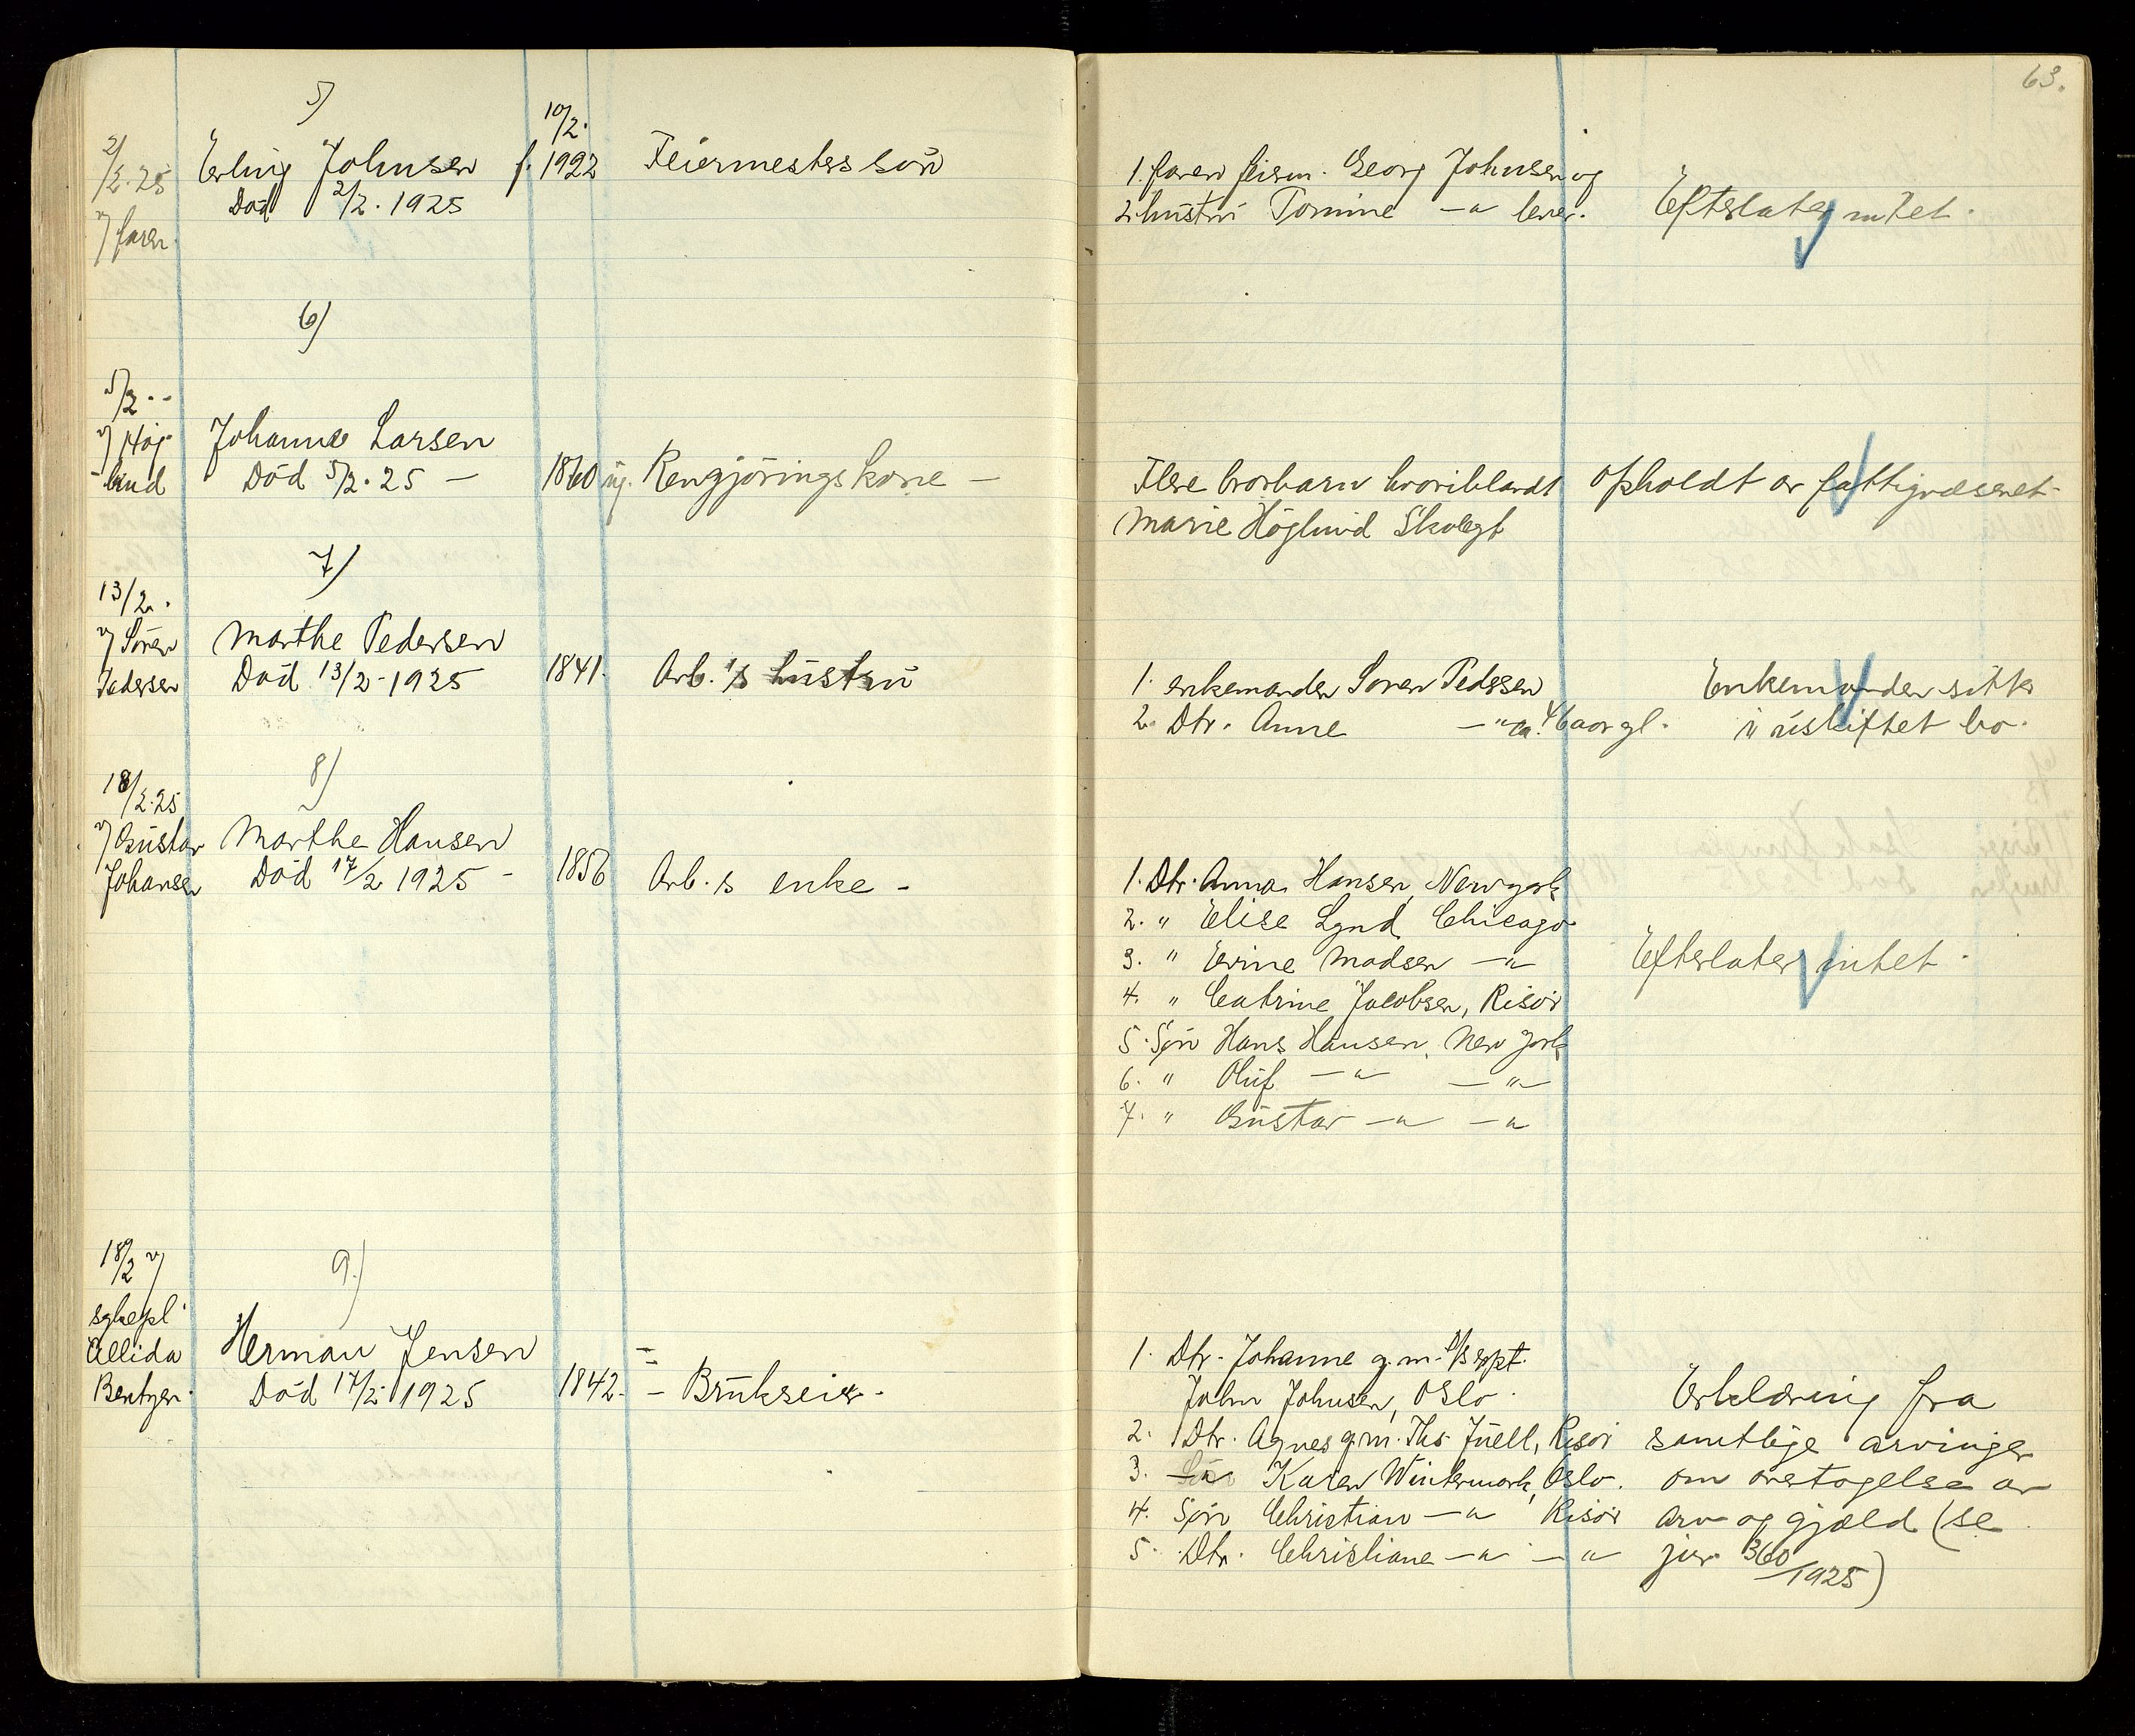 63.
5)
2/2.25 Erling Johnsen f. 10/2. 1922 Feiermesters søn 1. faren feierm. Georg Johnsen og
v/ faren Død 2/2. 1925 2. hustru Tomine —"— lever. Efterlater intet.
6)
5/2 --
v/ Høg- Johanne Larsen
lund Død 5/2. 25 — 1860 ug. Rengjøringskone — Flere brorbarn hvoriblandt opholdt av fattigvæsenet
Marie Höglund Skolegt
7)
13/2.
v/ Søren Marthe Pedersen
Pedersen Død 13/2 - 1925 1841. Arb.'s hustru 1. enkemanden Søren Pedersen Enkemanden sitter
2. Dtr. Anne —"— ca. 46 aar gl. i uskiftet bo.
8)
18/2.25
v/ Gustav Marthe Hansen
Johansen Død 17/2 1925 - 1856 Arb.s enke - 1. Dtr. Anna Hansen, Newyork
2. " Elise Lynd, Chicago
3. " Erine Madsen —"— Efterlater intet.
4. " Catrine Jacobsen, Risør
5. Søn Hans Hansen, New York
6. " Oluf —"— —"—
7. " Gustav —"— —"—
9.)
18/2 v/
sykepl.
Ellida Herman Jensen 1. Dtr. Johanne g.m. skpt.
Bentzen. Død 17/2 1925 1842. - Brukseier. John Johnsen, Oslo. Erklæring fra
2. Dtr. Agnes g.m. Ths. Juell, Risør samtlige arvinger
3. —"— Karen Wintermark, Oslo. om overtagelse av
4. Søn Christian —"— Risør arv og gjæld (se
5. Dtr. Christiane —"— —"— jur. 360/1925)